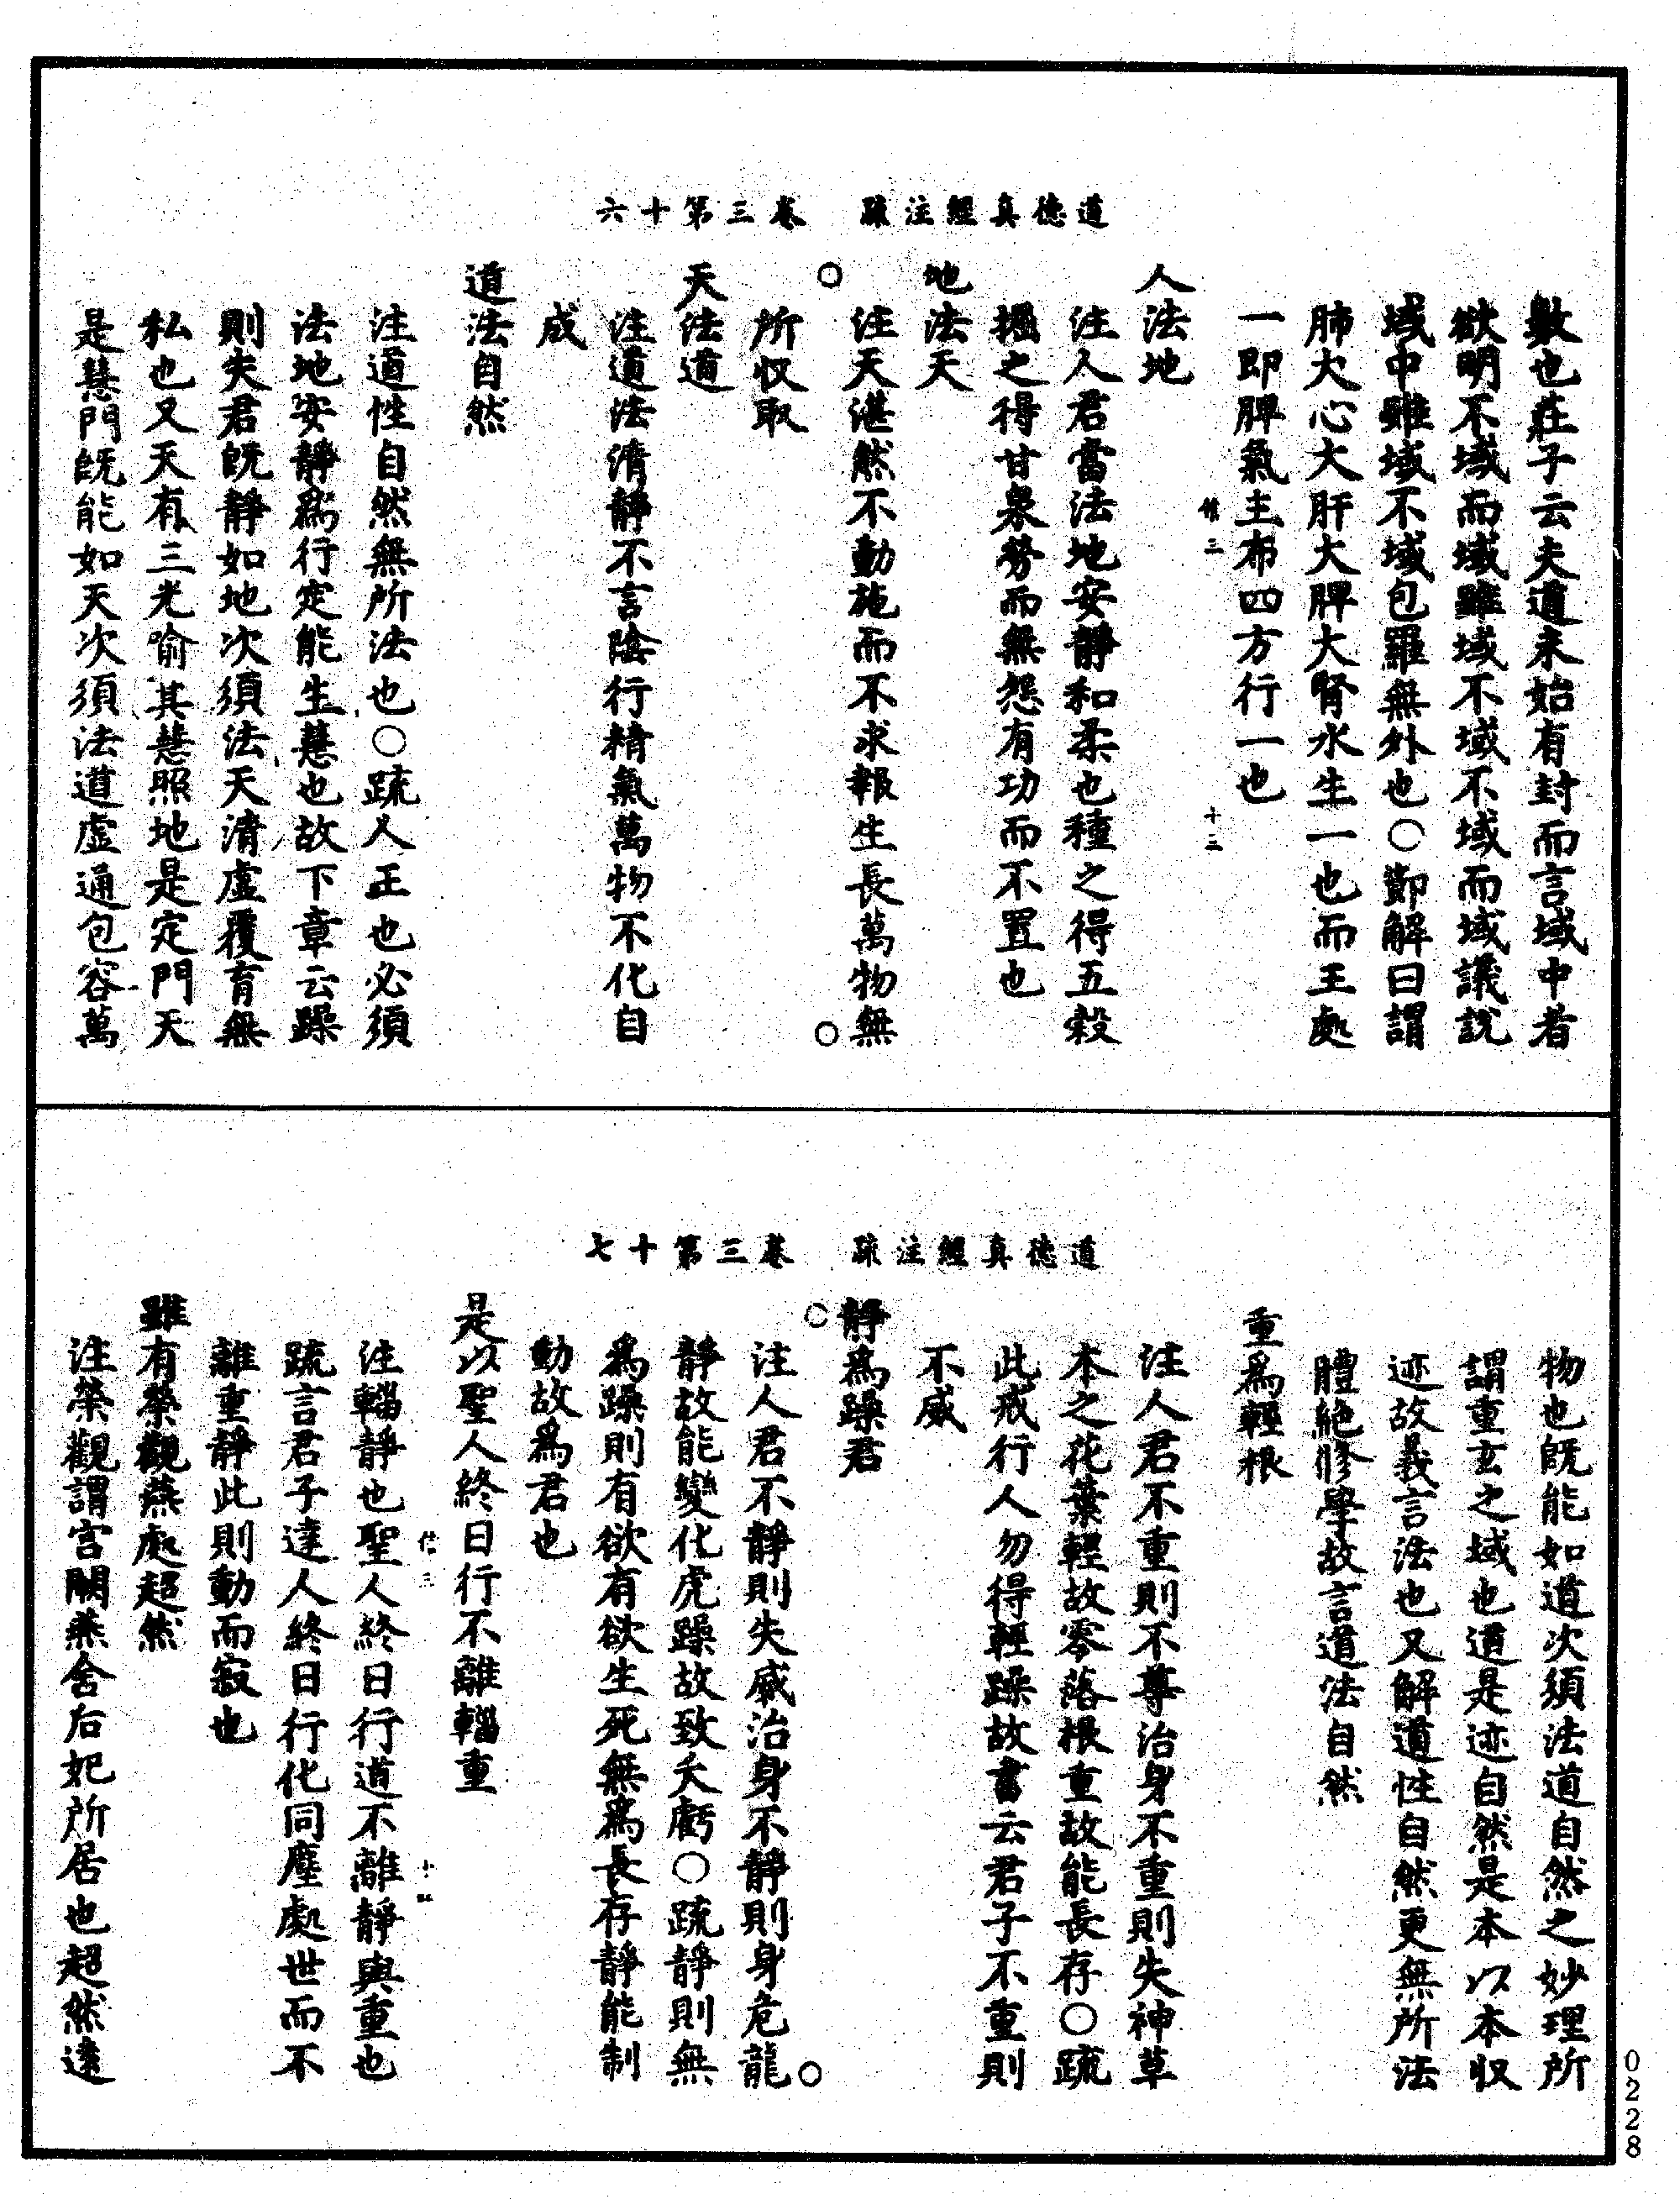 道德真經注疏　卷三第十六
數也莊子云夫道未始有封而言域中者
欲明不域而域雖域不域不域而域議說
域中雖域不域包羅無外也○鄭解曰謂
肺大心大肝大脾大腎水生一也而王處
一即脾氣主布四方行一也
三
十三
人法地
注人君當法地安靜和柔也種之得五穀
掘之得甘泉勞而無怨有功而不置也
地法天
注天湛然不動施而不求報生長萬物無
○　○
所収取
天法道
注道法清靜不言陰行精氣萬物不化自
成
道法自然
注道性自然無所法也○疏人王也必須
法地安靜爲行定能生慧也故下章云躁
則失君旣靜如地次須法天清虛覆育無
私也又天有三光喻其慧照地是定門天
是慧門旣能如天次須法道虛通包容萬
道德真經注疏　卷三第十七
物也旣能如道次須法道自然之妙理所
謂重玄之域也道是迹自然是本以本収
迹故義言法也又解道性自然更無所法
體絕修學故言道法自然
重爲輕根
注人君不重則不尊治身不重則失神草
本之花葉輕故零落根重故能長存○疏
此戒行人勿得輕躁故書云君子不重則
不威
靜爲躁君
○　○
注人君不靜則失威治身不靜則身危龍
靜故能變化虎躁故致夭虧○疏靜則無
爲躁則有欲有欲生死無爲長存靜能制
動故爲君也
是以聖人終日行不離輜重
三
十四
注輜靜也聖人終日行道不離靜與重也
疏言君子達人終日行化同塵處世而不
離重靜此則動而寂也
雖有榮觀燕處超然
注榮觀謂宮闕燕舍后妃所居也超然遠
0228